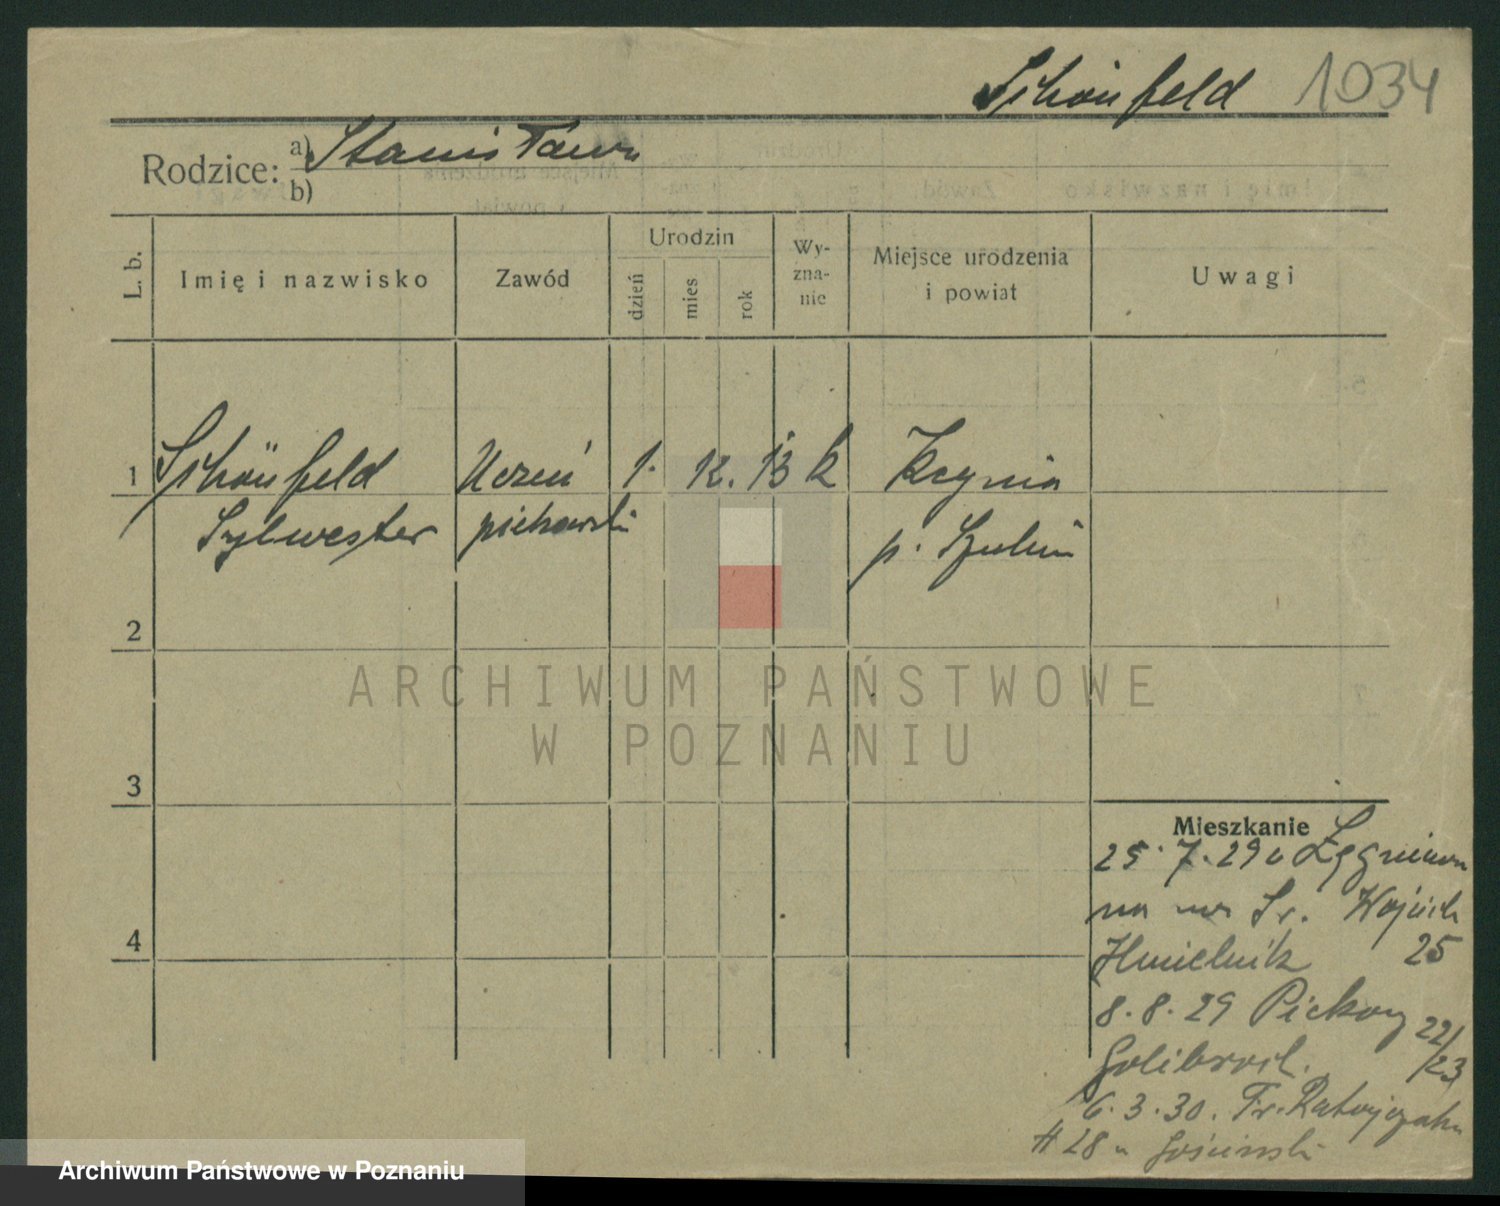 Schönfeld 1034
Rodzice: a) Stanisława
b)
L. b.
Imię i nazwisko
Zawód
Urodzin
dzień
mies
rok
Wy-
zna-
nie
Miejsce urodzenia
i powiat
Uwagi
1 Schönfeld Uczeń 1. 12. 13 k Kcynia
Sylwester piekarski p. Szubin
2
ARCHIWUM PAŃSTWOWE
W POZNANIU
3
Mieszkanie
25. 7. 29 u
na Św. Wojciech
25
8. 8. 29 Piekary 22/23
6. 3. 30. Fr. Ratajczaka
28 u
4
Archiwum Państwowe w Poznaniu